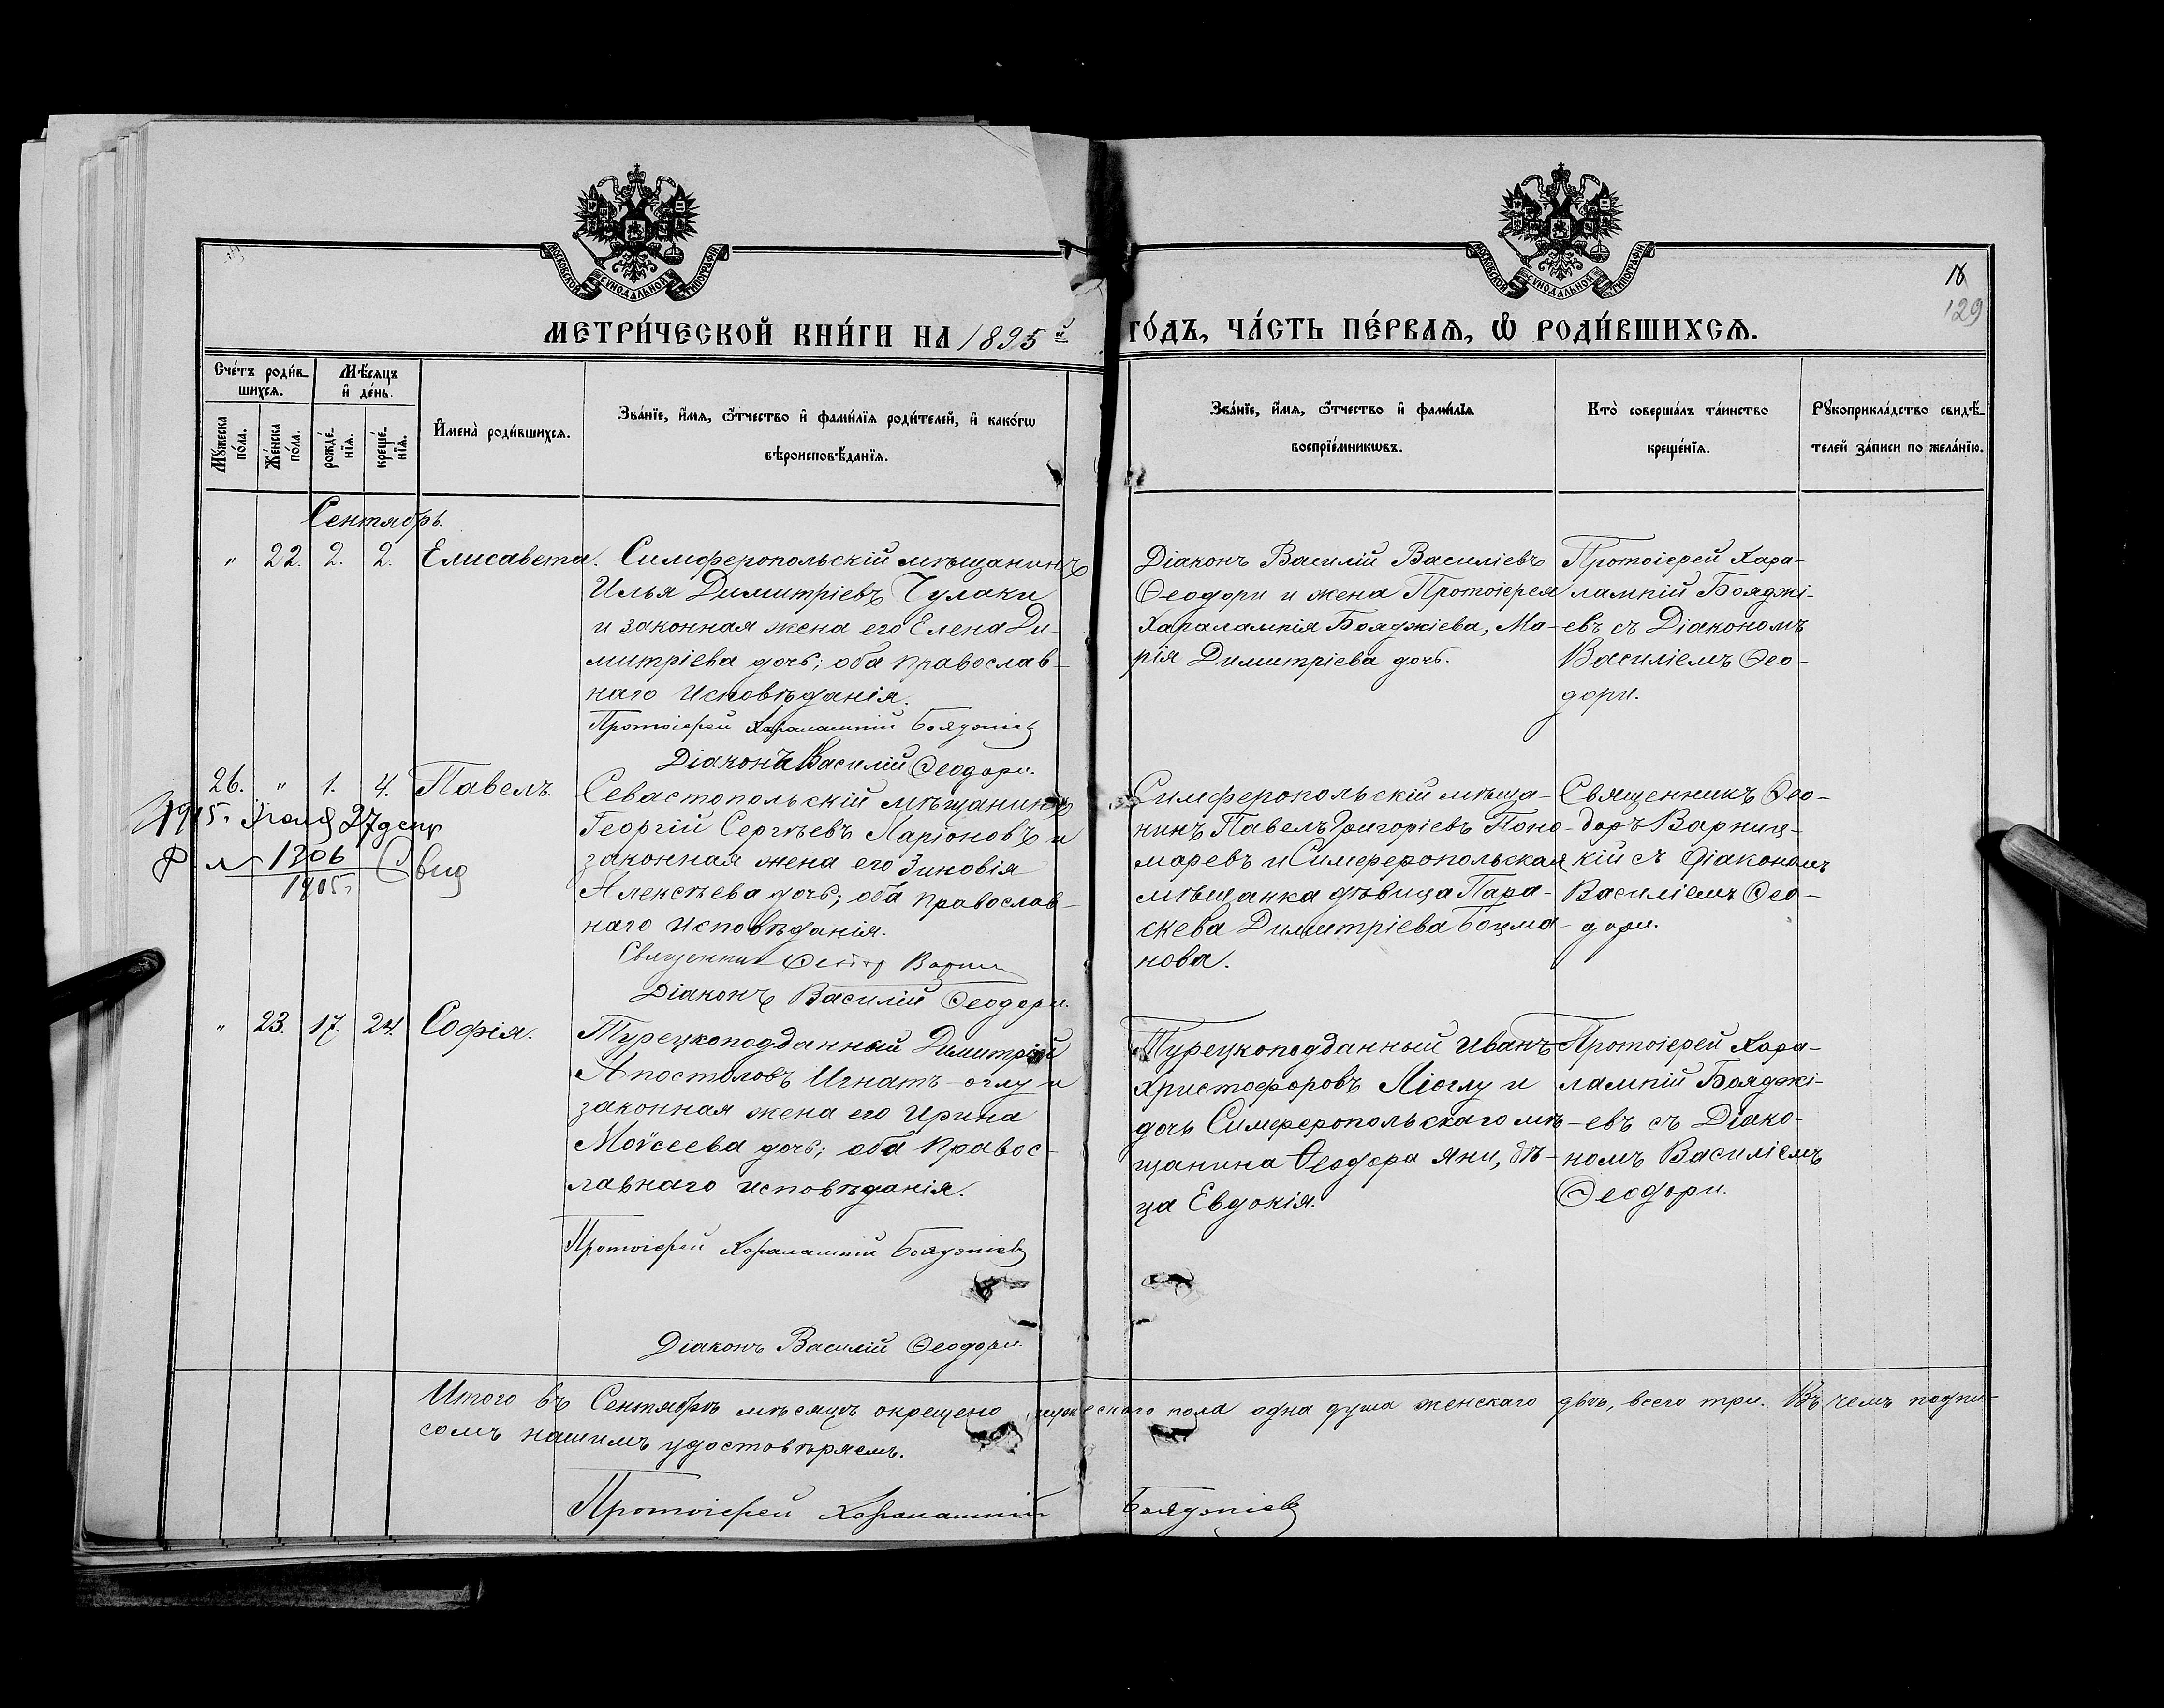 МОСКОВСКОЙ СѴНОДАЛЬНОЙ ТИПОГРАФІИ
МОСКОВСКОЙ СѴНОДАЛЬНОЙ ТИПОГРАФІИ
129
МЕТРИ́ЧЕСКОЙ КНИ́ГИ НА 1895 й ГО́ДЪ, ЧА́СТЬ ПЕ́РВАѦ, Ѡ҆ РОДИ́ВШИХСѦ.
Сче́тъ роди́в-
шихсѧ.
Мѣ́сѧцъ
и҆ де́нь.
Мꙋ́жеска
по́ла.
Же́нска
по́ла.
рожде́-
нїѧ.
креще́-
нїѧ.
И҆мена̀ роди́вшихсѧ.
Зва́нїе, и҆́мѧ, ѻ҆́тчество и҆ фами́лїѧ роди́телей, и҆ како́гѡ
вѣроисповѣ́данїѧ.
Зва́нїе, и҆́мѧ, ѻ҆́тчество и҆ фами́лїѧ
воспрїе́мникѡвъ.
Кто̀ соверша́лъ та́инство
креще́нїѧ.
Рꙋкоприкла́дство свидѣ́-
телей за́писи по жела́нїю.
Сентябрь.
" 22. 2. 2. Елисавета.
Симферопольскій мѣщанинъ
Илья Димитріевъ Чулаки
и законная жена его Елена Ди-
митріева дочь; оба православ-
наго исповѣданія.
Протоіерей Харалампій Бояджіев
Діаконъ Василій Ѳеодори.
Діаконъ Василій Василіевъ
Ѳеодори и жена Протоіерея
Харалампія Бояджіева, Ма-
рія Димитріева дочь.
Протоіерей Хара-
лампій Бояджі-
евъ съ Діакономъ
Василіемъ Ѳео-
дори.
26. " 1. 4. Павелъ.
27 дня
№ 1206
1905 г.
Свид
Севастопольскій мѣщанинъ
Георгій Сергѣевъ Ларіоновъ и
законная жена его Зиновія
Алексѣева дочь; оба православ-
наго исповѣданія.
Священник
Діаконъ Василій Ѳеодори.
Симферопольскій мѣща-
нинъ Павелъ Григоріевъ Поно-
маревъ и Симферопольская
мѣщанка дѣвица Пара-
скева Димитріева Боцма-
нова.
Священникъ Ѳео-
доръ Варниц-
кій съ Діакономъ
Василіемъ Ѳео-
дори.
" 23. 17. 24. Софія.
Турецкоподданный Димитрій
Апостоловъ Игнатъ-оглу и
законная жена его Ирина
Моѵсеева дочь; оба правос-
лавнаго исповѣданія.
Протоіерей Харалампій Бояджіев
Діаконъ Василій Ѳеодори.
Турецкоподданный Иванъ
Христофоровъ Ліоглу и
дочь Симферопольскаго мѣ-
щанина Ѳеодора Яни, дѣ-
ца Евдокія.
Протоіерей Хара-
лампій Бояджі-
евъ съ Діако-
номъ Василіемъ
Ѳеодори.
Итого въ Сентябрѣ мѣсяцѣ окрещено мужескаго пола одна душа женскаго двѣ, всего три. Въ чемъ подпи-
сомъ нашимъ удостовѣряемъ.
Протоіерей Харалампій Бояджіев